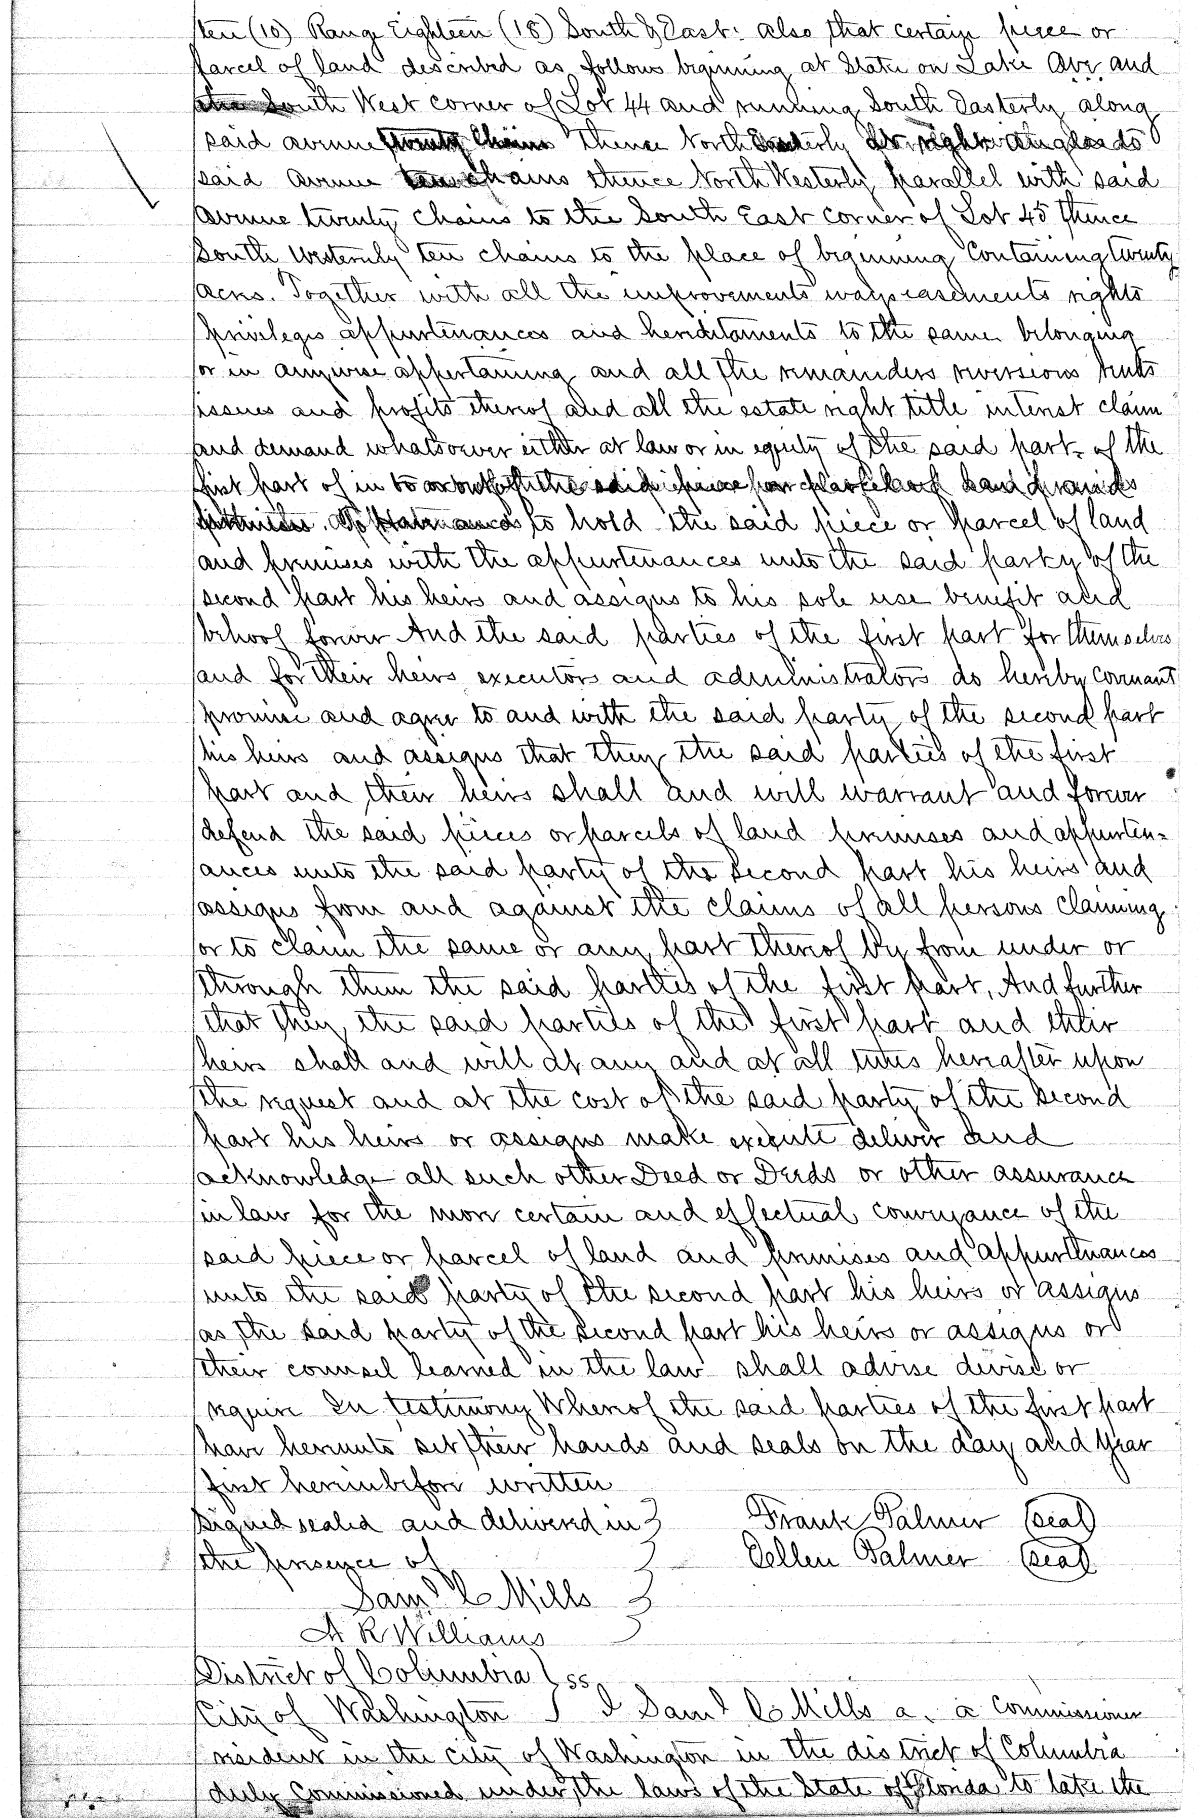 ten (10) Range Eighteen (18) South & East: also that certain piece or
parcel of land described as follows beginning at Stake on Lake Ave, and
the South West corner of Lot 44 and running South Easterly along
said avenue twenty Chains thence North Easterly at right angles to
said avenue ten chains thence North Westerly parallel with said
avenue twenty chains to the South East corner of Lot 45 thence
South Westernly ten chains to the place of beginning Containing twenty
acres. Together with all the improvements ways easements rights
privileges appurtenances and hereditaments to the same belonging
or in anywise appertaining and all the remainders reversions rents
issues and profits thereof and all the estate right title interest claim
and demand whatsoever either at law or in equity of the said part- of the
first part of in to or out of the said piece or parcel of land and
premises. To Have and to hold the said piece or parcel of land
and premises with the appurtenances unto the said party of the
second part his heirs and assigns to his sole use benefit and
behoof forever And the said parties of the first part for themselves
and for their heirs executors and administrators do hereby covenant
promise and agree to and with the said party of the second part
his heirs and assigns that they the said parties of the first
part and their heirs shall and will warrant and forever
defend the said pieces or parcels of land premises and appurten=
ances unto the said party of the second part his heirs and
assigns from and against the claims of all persons claiming
or to claim the same or any part thereof by from under or
through them the said parties of the first part, And further
that they the said parties of the first part and their
heirs shall and will at any and at all times hereafter upon
the request and at the cost of the said party of the second
part his heirs or assigns make execute deliver and
acknowledge all such other Deed or Deeds or other assurance
in law for the more certain and effectual conveyance of the
said piece or parcel of land and premises and appurtenances
unto the said party of the second part his heirs or assigns
as the said party of the second part his heirs or assigns or
their counsel learned in the law shall advise devise or
require In testimony Whereof the said parties of the first part
have hereunto set their hands and seals on the day and Year
first hereinbefore written
Signed sealed and delivered in } Frank Palmer (seal)
the presence of } Cellen Palmer (seal)
Saml C Mills }
A R Williams
District of Columbia } ss
City of Washington } I Saml C Mills a. a Commissioner
resident in the city of Washington in the district of Columbia
duly Commissioned under the laws of the State of Florida to take the